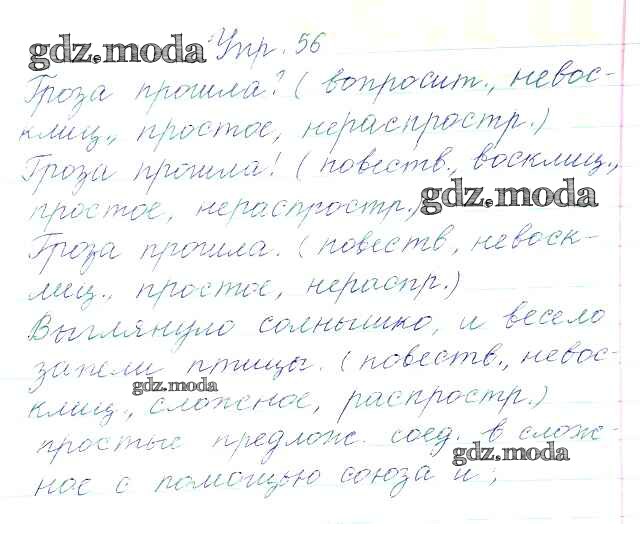 gdz.moda Упр. 56
Гроза прошла? (вопросит., невос-
клиц., простое, нераспростр.)
Гроза прошла! (повеств., восклиц.,
gdz.moda
простое, нераспростр.)
Гроза прошла. (повеств, невоск-
лиц., простое, нераспр.)
Выглянуло солнышко, и весело
запели птицы. (повеств., невос-
gdz.moda
клиц., сложное, распростр.)
простые предлож. соед. в слож-
gdz.moda
ное с помощью союза и;